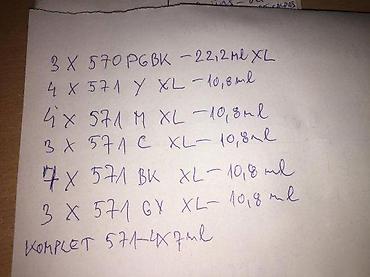 3 X 570PGBK - 22,2ml XL
4 X 571 Y XL - 10,8ml
4 X 571 M XL - 10,8ml
3 X 571 C XL - 10,8ml
7 X 571 BK XL - 10,8ml
3 X 571 GY XL - 10,8ml
KOMPLET 571-4X7ml